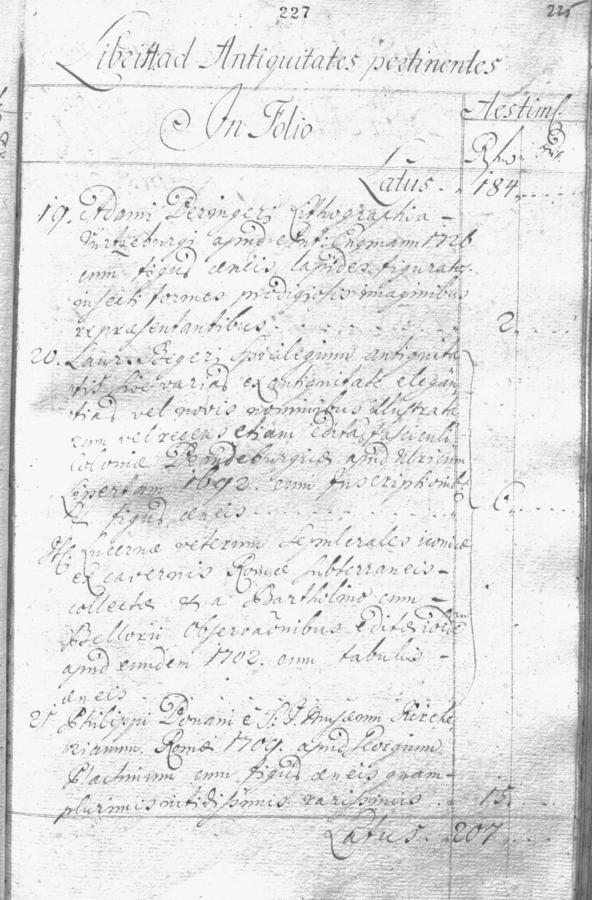 227
225
Libri ad Antiquitates pertinentes
In Folio
Aestim.
Latus 184
19. Adami Beringeri Lithographia
Würtzeburgi apud 1726
cum figuris aeneis lapides figuratos
insecti formes prodigiosis imaginibus
repraesentantibus 2
20. Laur. Begeri Spicilegium antiquita
tis sive varias ex antiquitate elegan
tias vel novis nominibus illustratae
etiam editas fasciculi
Coloniae Brandeburgicae apud Ulricum
Lipertum 1692. cum Inscriptionibus
& figuris aeneis 6
Lucernae veterum sepulcrales iconicae
ex cavernis Romae subterraneis
collectae & a Bartholino cum
Bellorii Observationibus editae ibidem
apud eundem 1702. cum tabulis
aeneis
21 Philippi Bonani è S. J. Musaeum Kirche
rianum. Romae 1709. apud Georgium
Plachinum cum figuris aeneis quam
plurimis nitidissimis rarissimus 15.
Latus. 207